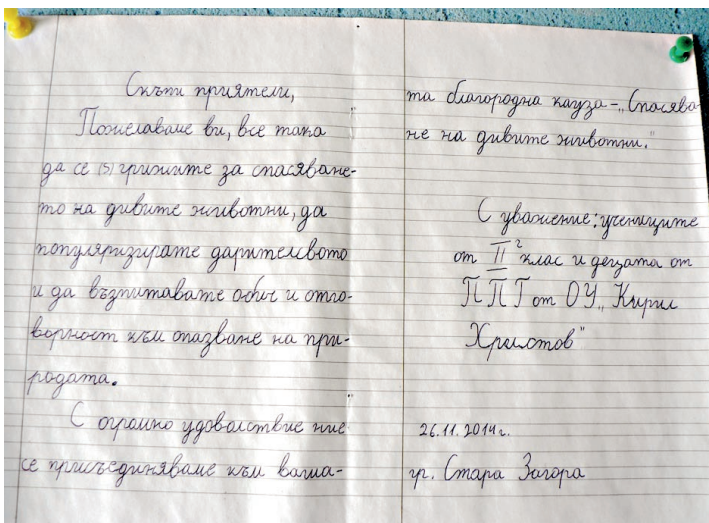 Скъпи приятели,
Пожелаваме ви, все така
да се (s) грижите за спасяване-
то на дивите животни, да
популяризирате дарителството
и да възпитавате обич и отго-
ворност към опазване на при-
родата.
С огромно удоволствие ние
се присъединяваме към ваша-
та благородна кауза-„Спасява-
не на дивите животни."
С уважение: учениците
от II г клас и децата от
ППГ от ОУ „Кирил
Христов"
26.11.2014г.
гр. Стара Загора